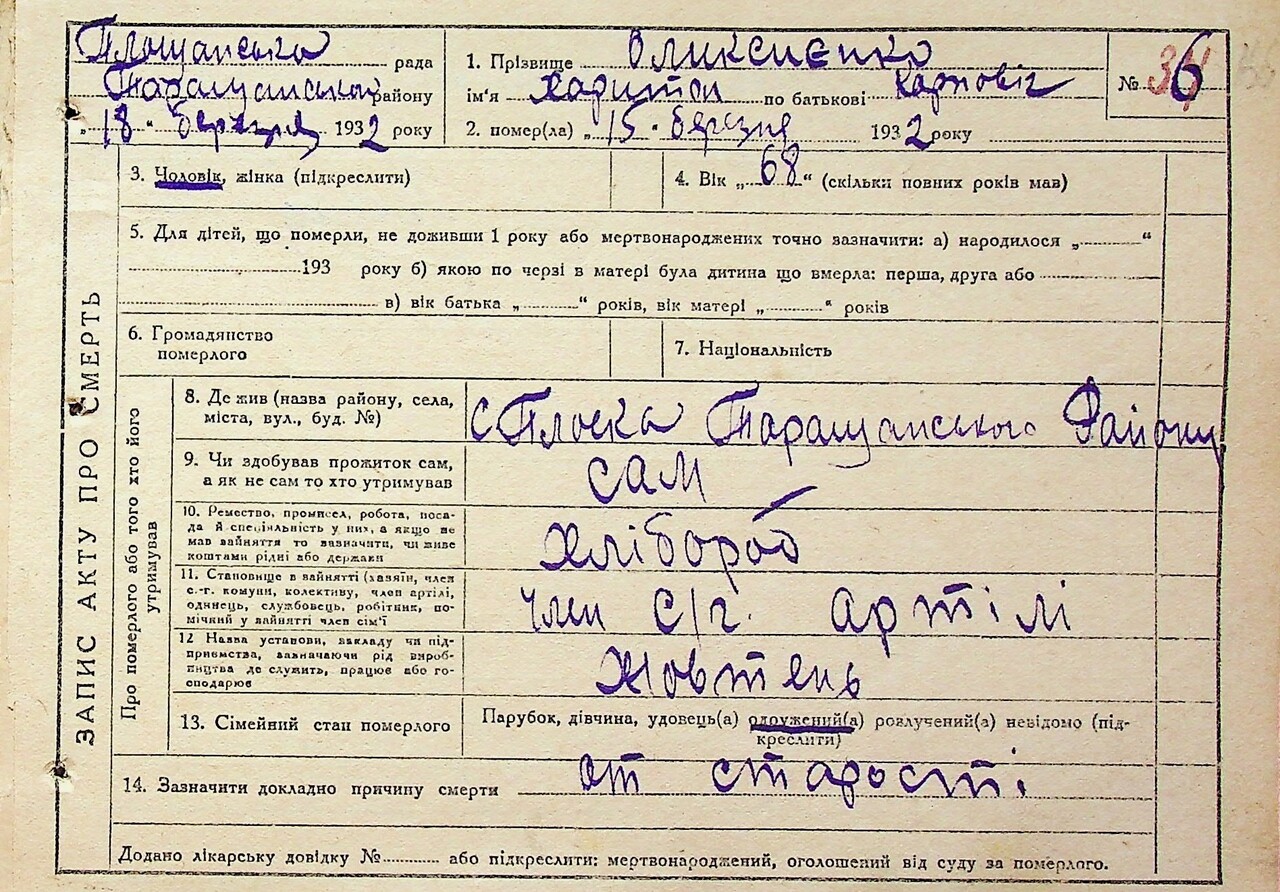 Площанська рада
Таращанського району
„18“ березня 1932 року
1. Прізвище Оликсиєнко
ім'я Харитон по батькові Карповіч
2. помер(ла) „15“ березня 1932 року
№ 6
3. Чоловік, жінка (підкреслити)
4. Вік „68“ (скільки повних років мав)
5. Для дітей, що померли, не доживши 1 року або мертвонароджених точно зазначити: а) народилося „ “
193 року б) якою по черзі в матері була дитина що вмерла: перша, друга або
в) вік батька „ “ років, вік матері „ “ років
6. Громадянство
померлого
7. Національність
ЗАПИС АКТУ ПРО СМЕРТЬ
Про померлого або того хто його
утримував
8. Де жив (назва району, села,
міста, вул., буд. №)
с Плоска Таращанського Району
9. Чи здобував прожиток сам,
а як не сам то хто утримував
сам
10. Ремество, промисел, робота, поса-
да й спеціяльність у них, а якщо не
мав заняття то зазначити, чи живе
коштами рідні або держави
хлібороб
11. Становище в занятті (хазяїн, член
с.-г. комуни, колективу, член артілі,
одинець, службовець, робітник, по-
мічний у занятті член сім'ї
член с/г. артілі
12 Назва установи, закладу чи під-
приємства, зазначаючи рід вироб-
ництва де служить, працює або го-
сподарює
Жовтень
13. Сімейний стан померлого
Парубок, дівчина, удовець(а) одружений(а) розлучений(а) невідомо (під-
креслити)
14. Зазначити докладно причину смерти от старості
Додано лікарську довідку № або підкреслити: мертвонароджений, оголошений від суду за померлого.